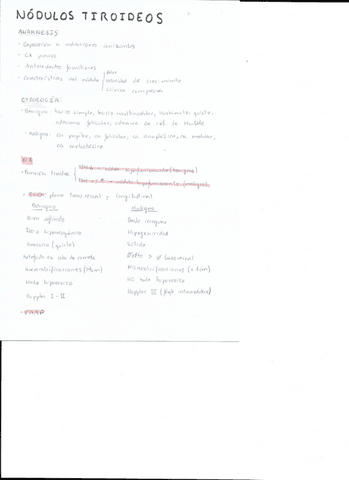 NÓDULOS TIROIDEOS
ANAMNESIS
- Exposición a radiaciones ionizantes
- CA previos
- Antecedentes familiares
- Características del nódulo dolor
velocidad de crecimiento
clínica compresiva
CITOLOGÍA:
- Benigno: bocio simple, bocio multinodular, quiste,
adenoma folicular, adenoma de cel. de Hürthle
- Maligno: ca. papilar, ca. folicular, ca. anaplásico, ca. medular,
ca. metastásico
- Función tiroidea
plano transversal y longitudinal
Benigno Maligno
Bien definido Borde irregular
Iso o hiperecogénico Hipoecogenicidad
(quiste) Sólido
transversal
Macrocalcificaciones Microcalcificaciones
Halo hiperecoico NO halo hiperecoico
Doppler I-II Doppler III
- PAAF